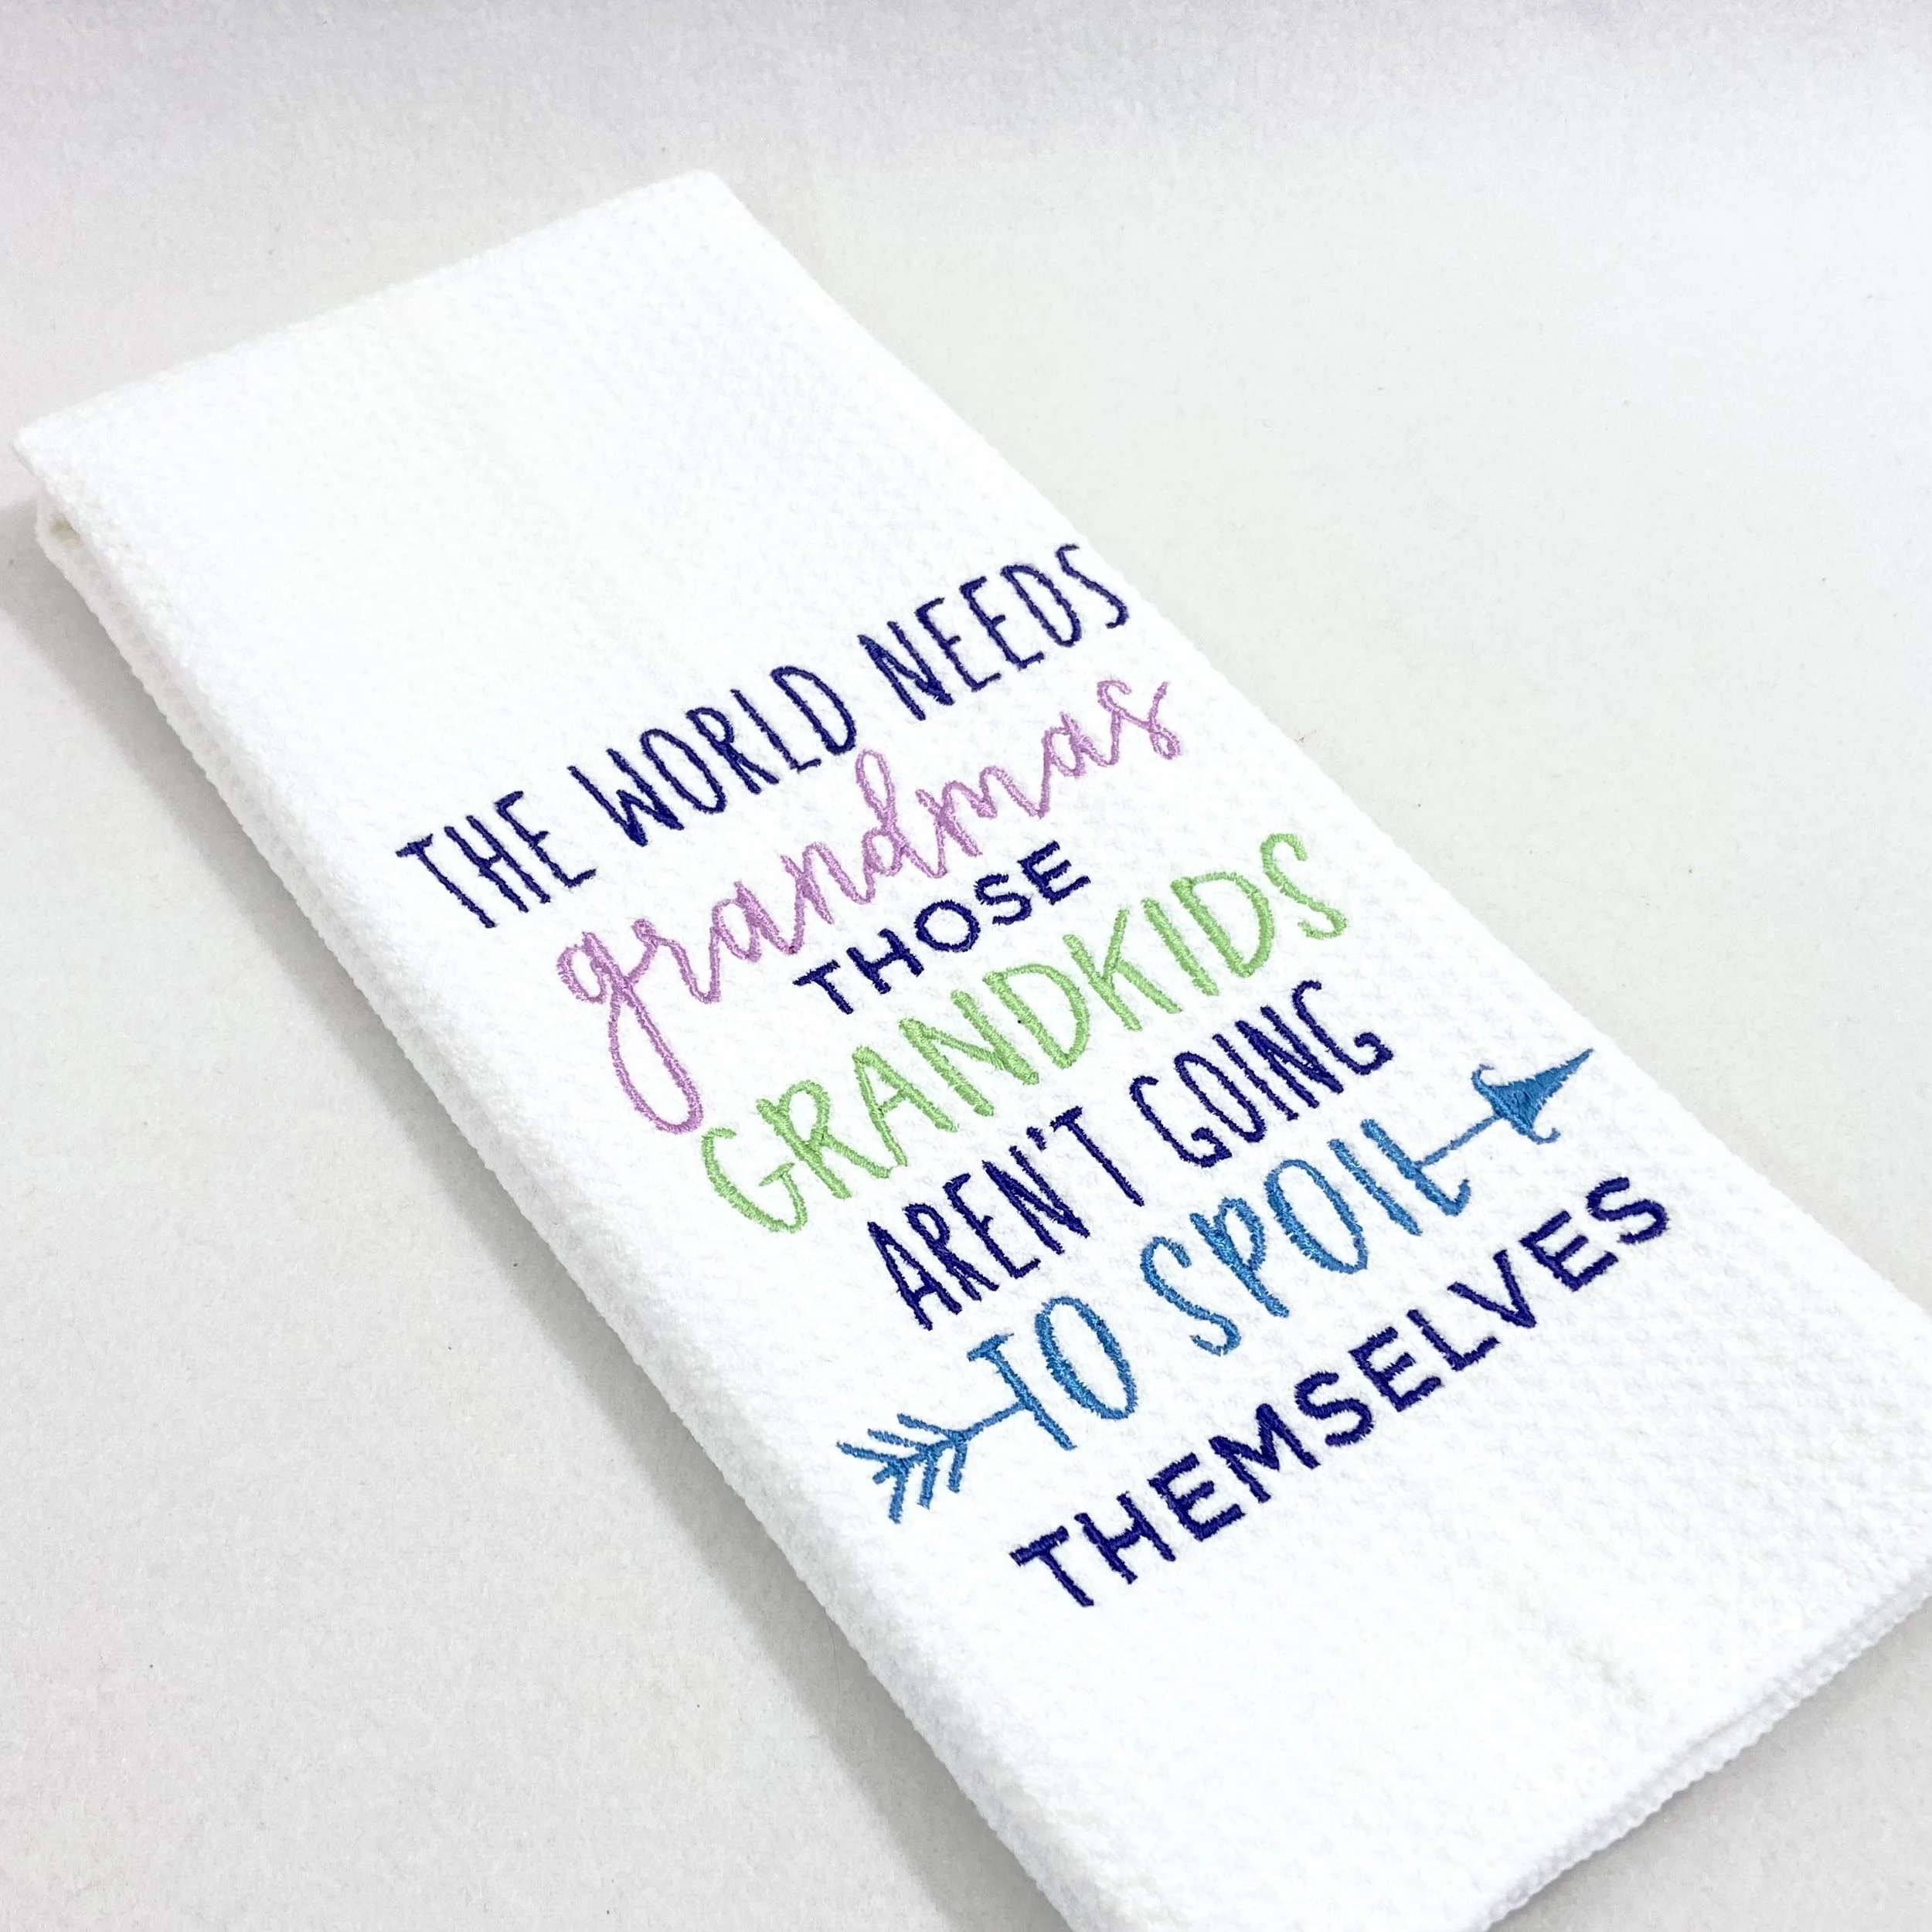 THE WORLD NEEDS
grandmas
THOSE
GRANDKIDS
AREN'T GOING
TO SPOIL
THEMSELVES